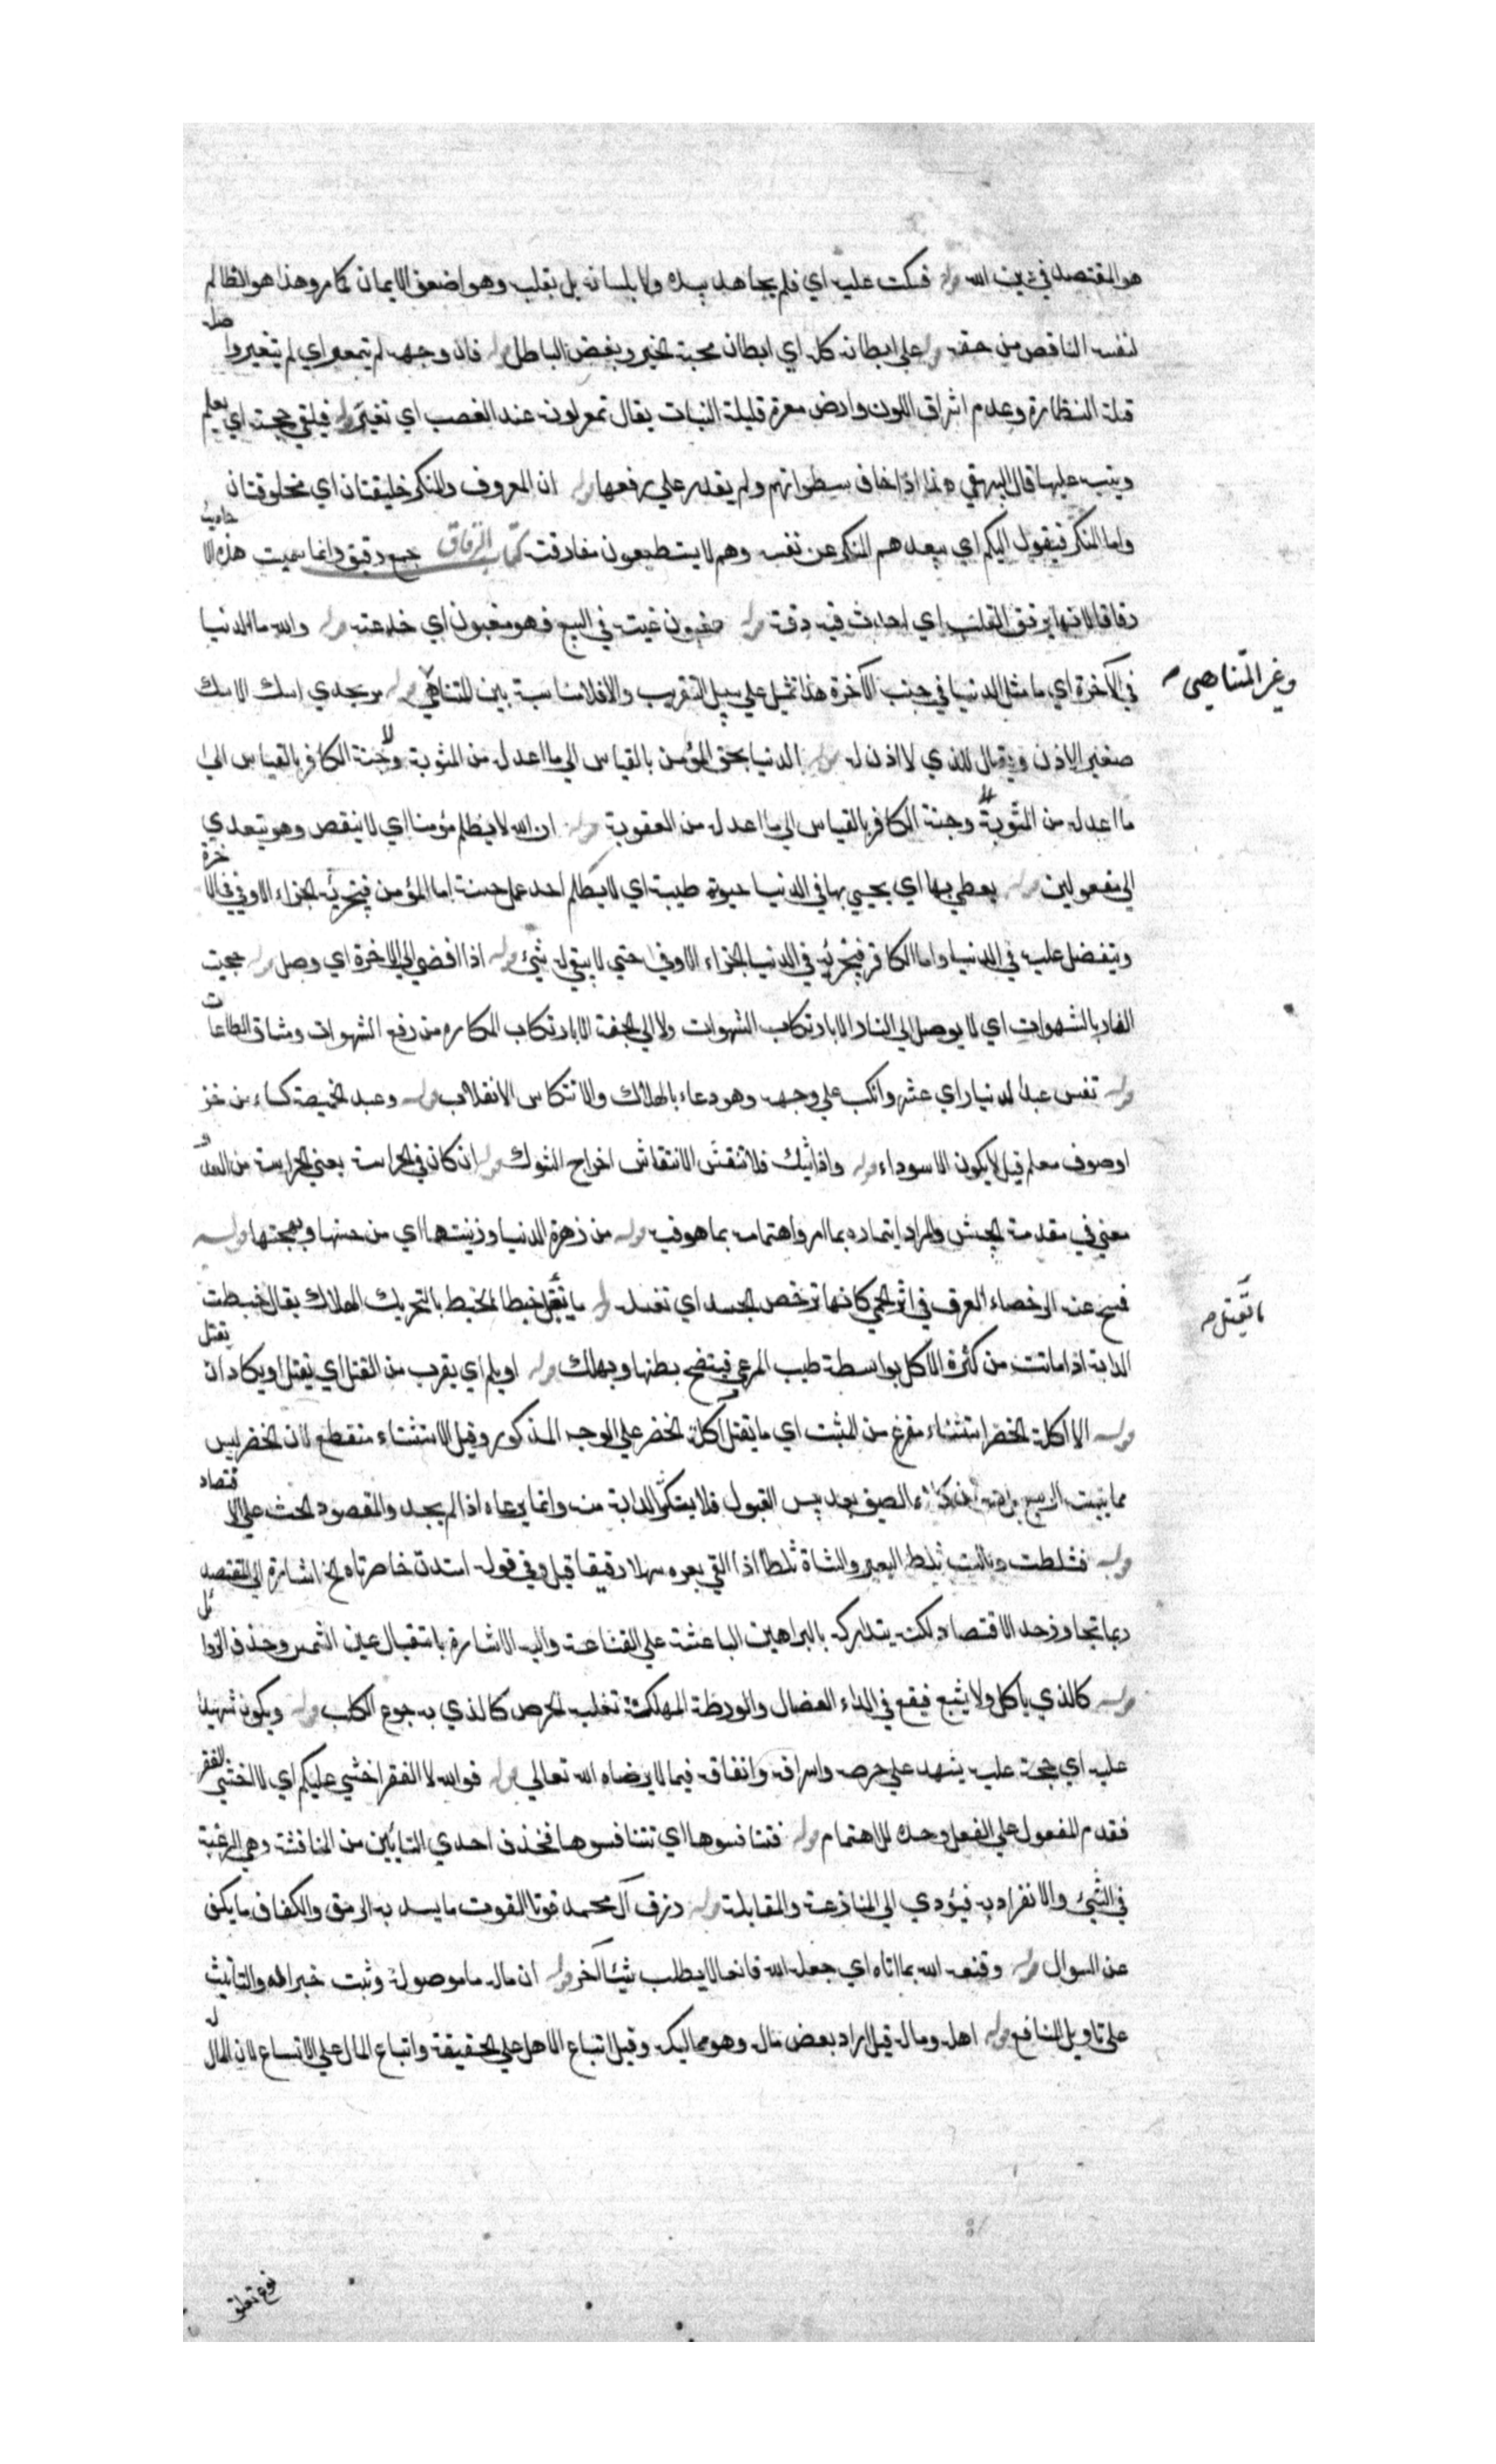 هو المقتصد في دين الله قوله فسكت عليه اي فلم يجاهد بيده ولا بلسانه بل بقلبه وهو اضعف الايمان كما مر وهذا هو الظالم
لنفسه الناقص من حقه قوله على ابطانه كله اي ابطان محبة الخير وبغض الباطل قوله فان وجهه لم يتمعر اي لم يتغير واصله
قلة النظارة وعدم اشراق اللون وارض معرة قليلة النبات يقال تمعر لونه عند الغصب اي تغير قوله فيلقى حجته اي يعلم
وينبه عليها قال البيهقي هذا اذا خاف سطواتهم ولم يقدر علي رفعها قوله ان المعروف والمنكر خليقتان اي مخلوقتان
واما المنكر فيقول اليكم اي يبعدهم المنكر عن نفسه وهم لا يستطيعون مفارقته كتاب الرقاق جمع رقيق وانما سميت هذه الاحاديث
رقاقا لانها ترقق القلب اي احدثت فيه رقة قوله مغبون غبنه في البيع فهو مغبون اي خدعته قوله والله ما الدنيا
في الآخرة اي ما مثل الدنيا في جنب الآخرة هذا تمثيل علي سبيل التقريب والا فلا مناسبة بين المتناهي قوله بجدي اسك الاسك
وغير المتناهي صح
صغير الاذن ويقال للذي لا اذن له قوله الدنيا سجن المؤمن بالقياس الى ما اعد له من المثوبة وجنة الكافر بالقياس الى
ما اعد له من المثوبة وجنة الكافر بالقياس الي ما اعد له من العقوبة قوله ان الله لا يظلم مؤمنا اي لا ينقص وهو يتعدي
الى مفعولين قوله يعطي بها اي يحيي بها في الدنيا حيوة طيبة اي لا يظلم احد عمل حسنة اما المؤمن فيجزيه الجزاء الاوفي في الآخرة
ويتفضل عليه في الدنيا واما الكافر فيجزيه في الدنيا الجزاء الاوفي حتي لا يبقى له شئ قوله اذا افضى الي الاخرة اي وصل قوله حجبت
النار بالشهوات اي لا يوصل الي النار الا بارتكاب الشهوات ولا الي الجنة الا بارتكاب المكاره من رفع الشهوات ومشاق الطاعات
قوله تعس عبد الدنيار اي عثر وانكب علي وجهه وهو دعاء بالهلاك والانتكاس الانقلاب قوله وعبد الخميصة كساء من خز
او صوف معلم قيل لا يكون الا سوداء قوله واذا شيك فلا انتقش الانتقاش اخراج الشوك قوله ان كان في الحراسة يعني الحراسة من العدو
معني في مقدمة الجيش والمراد ايتماره بما امر واهتمامه بما هو فيه قوله من زهرة الدنيا وزينتها اي من حسنها وبهجتها قوله
فمسح عنه الرخصاء العرق في اثر الحمي كانها ترخص الجسد اي تغسله قوله ما يقتل حبطا الحبط بالتحريك الهلاك يقال حبطت
ما يقتل صح
الدابة اذا ماتت من كثرة الاكل بواسطة طيب المرعي فينتفخ بطنها ويهلك قوله او يلم اي يقرب من القتل اي يقتل او يكاد ان يقتل
قوله الا آكلة الخضر استثناء مفرغ من المثبت اي ما يقتل آكلة الخضر علي الوجه المذكور وقيل الاستثناء منقطع لان الخضر ليس
مما ينبت الربيع الصيف بعد يبس القبول فلا يستكثر الدابة منه وانما يرعاه اذا لم يجد والمقصود الحث علي الاقتصاد
قوله فثلطت وبالت ثلط البعير والشاة ثلطا اذا القي بعره سهلا رقيقا قيل وفي قوله امتدت خاصرتاه الخ اشارة الي المقتصد
ربما تجاوز حد الاقتصاد لكنه يتداركه بالبراهين الباعثة علي القناعة واليه الاشارة باستقبال عين الشمس وحذف الزوائل
قوله كالذي يأكل ولا يشبع فيقع في الداء العضال والورطة المهلكة تغلب الحرص كالذي به جوع الكلب قوله ويكون شهيدا
عليه اي حجة عليه يشهد علي حرصه واسرافه وانفاقه فيما لا يرضاه الله تعالي قوله فوالله لا الفقر اخشي عليكم اي لا اخشي الفقر
فقدم المفعول علي الفعل وحده للاهتمام قوله فتنافسوها اي تتنافسوها فحذف احدي التائين من المنافسة وهي الرغبة
في الشئ والانفراد به فيؤدي الي المنازعة والمقابلة قوله رزق آل محمد قوتا القوت ما يسد به الرمق والكفاف ما يكف
عن السوال قوله وقنعه الله بما اتاه اي جعله الله قانعا لا يطلب شيئا آخر قوله ان ماله ما موصولة وثبت خبرا له والتأنيث
علي تاويل المنافع قوله اهله وماله قيل اراد بعض ماله وهو مماليكه وقيل اتباع الاهل علي الحقيقة واتباع المال علي الاتساع لان المال له
نوع تعلق